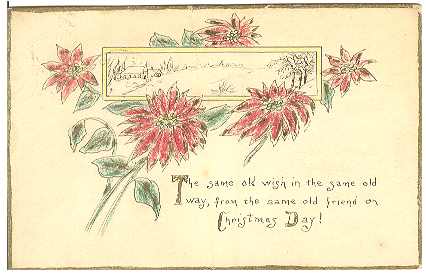 The same old wish in the same old
way, from the same old friend on
Christmas Day!